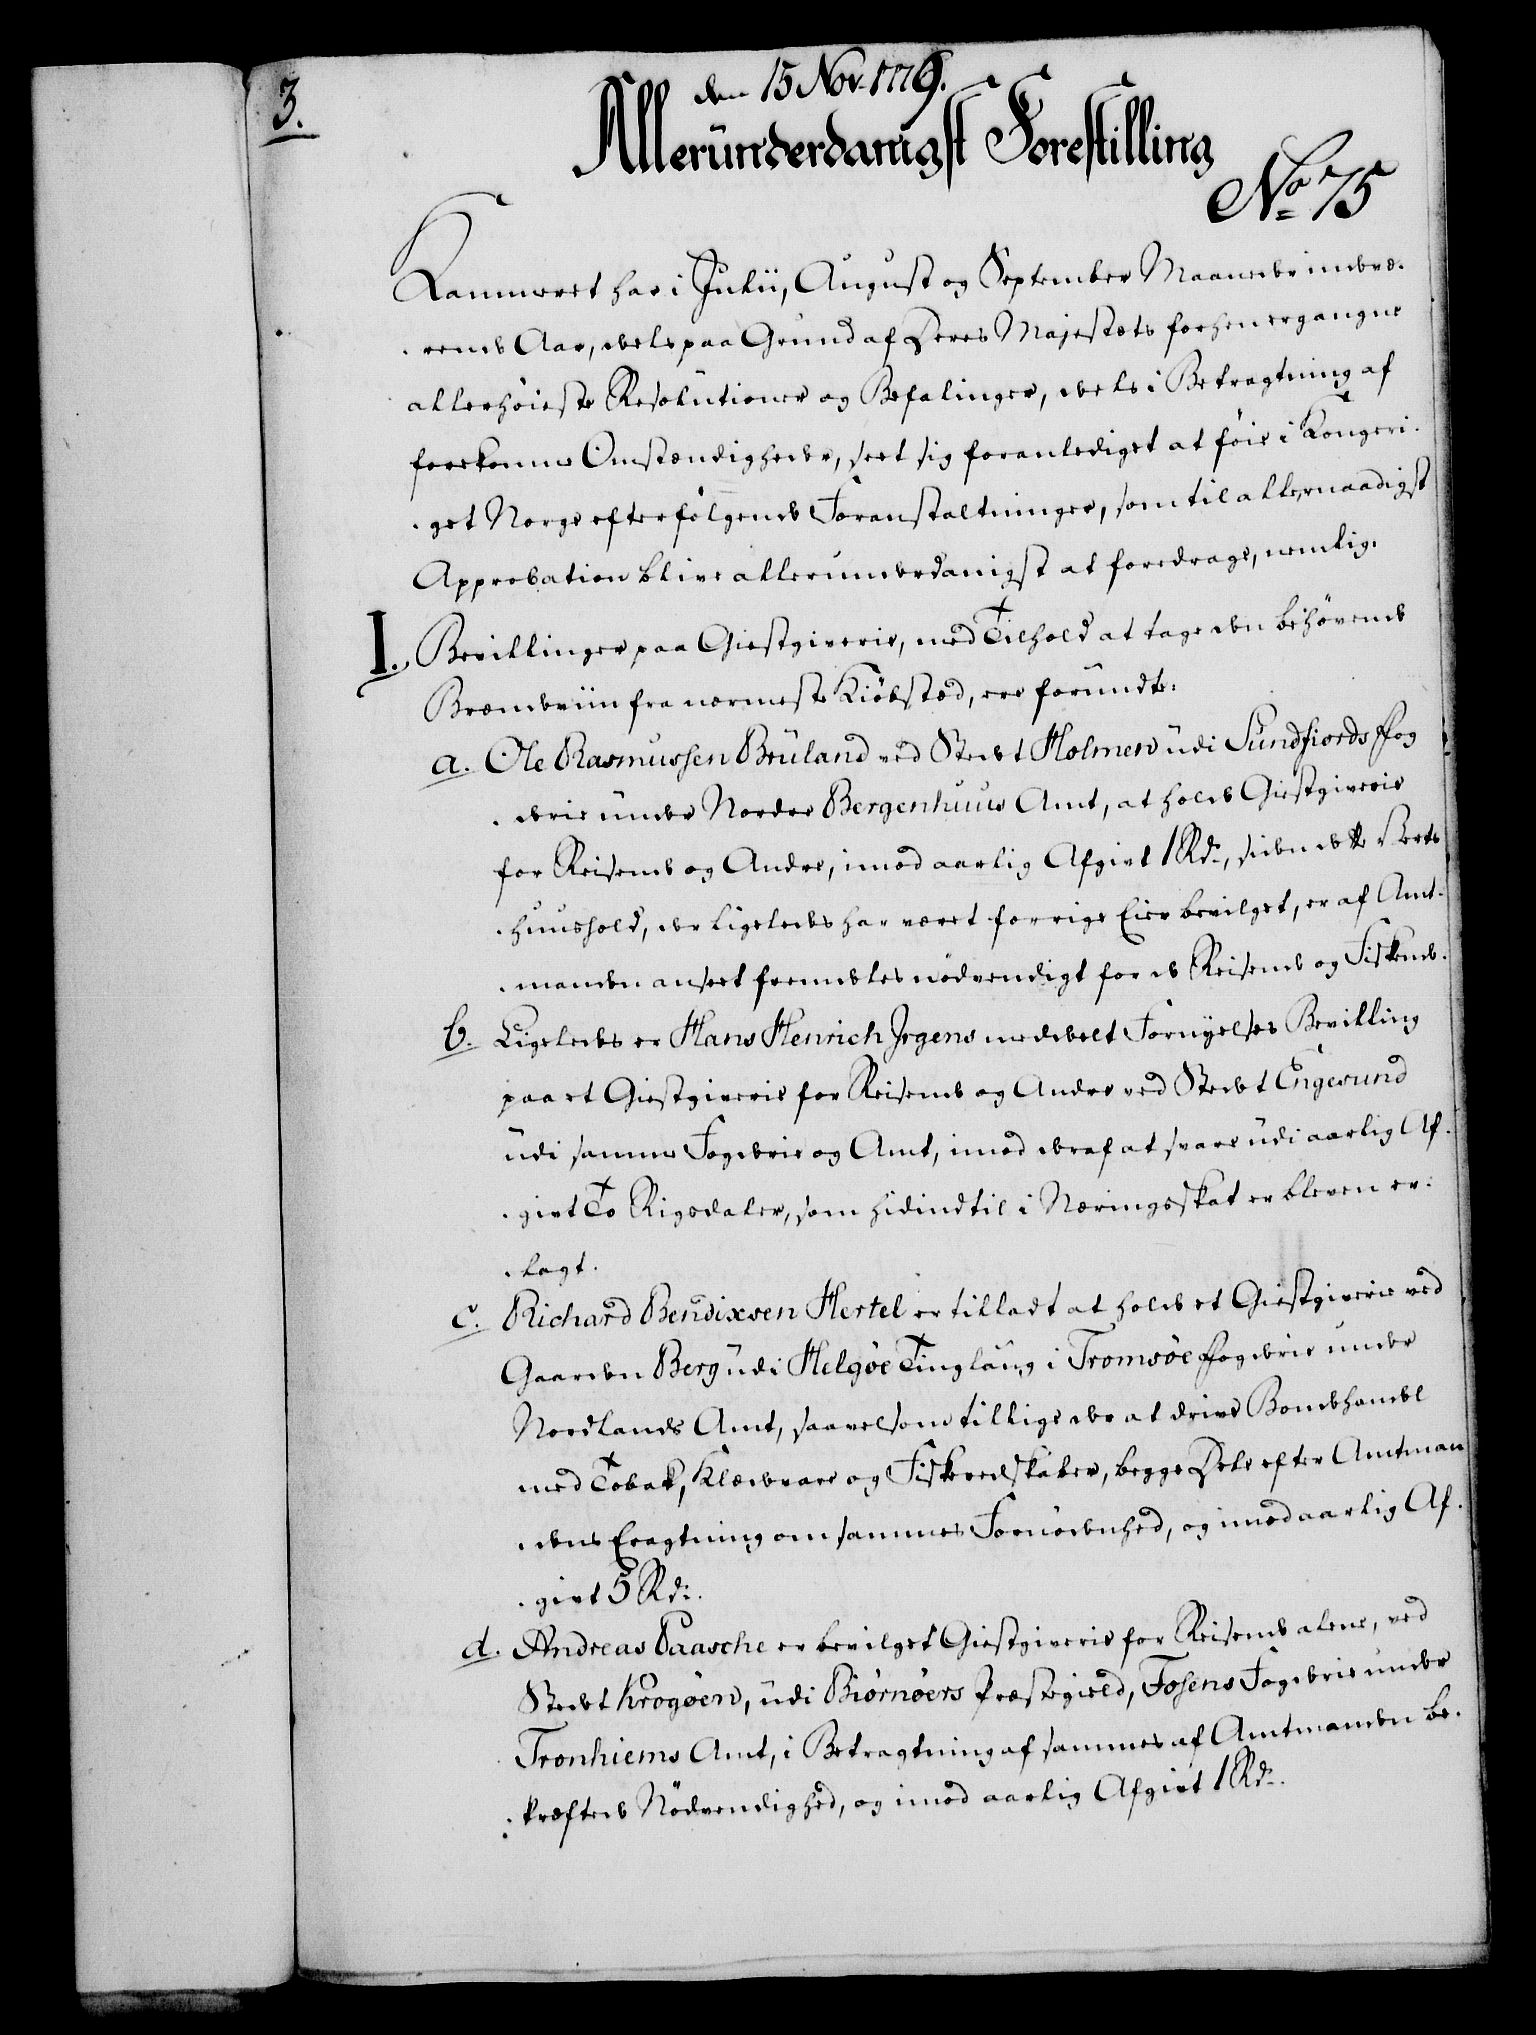 3.
den 15 Nov. 1779.
Alleründerdanigst Forestilling
No. 75
Kammeret har i Julii, August og September Maaneder indevæ-
-rende Aar, deels paa Grund af Deres Majestæts forhen ergangne
allerhöieste Resolütioner og Befalinger, deels i Betragtning af
forekomne Omstændigheder, seet sig foranlediget at föie i Kongeri-
-get Norge efterfölgende Foranstaltninger, som til allernaadigst
Approbation blive allerunderdanigst at foredrage, nemlig:
I. Bevillinger paa Giestgiverie, med Tilhold at tage den behövende
Brændeviin fra nærmeste Kiöbstæd, ere forundte:
a. Ole Rasmussen Brüland ved Stedet Holmen üdi Sundfiords Fog
-derie ünder Nordre Bergenhuus Amt, at holde Giestgiverie
for Reisende og Andre, imod aarlig Afgivt 1 Rdr., siden dette Verts-
-huushold, der ligeledes har været forrige Eier bevilget, er af Amt-
-manden anseet fremdeles nödvendigt for de Reisende og Fiskende.
b. Ligeledes er Hans Henrich Irgens meddeelt Fornÿelses Bevilling
paa et Giestgiverie for Reisende og Andre ved Stedet Engesund
üdi samme Fogderie og Amt, imod deraf at svare üdi aarlig Af-
-givt To Rigsdaler, som hidindtil i Næringsskat er bleven er-
-lagt.
c. Richard Bendixsen Hertel er tilladt at holde et Giestgiverie ved
Gaarden Berg üdi Helgöe Tinglaüg i Tromsöe Fogderie under
Nordlands Amt, saavelsom tillige der at drive Bondehandel
med Tobak, Klædevare og Fiskeredskaber, begge Dele efter Amtman
-dens Eragtning om sammes Fornödenhed, og imod aarlig Af-
-givt 5 Rdr.
d. Andreas Paasche er bevilget Giestgiverie for Reisende alene, ved
Stedet Krogöen, üdi Biörnöers Præstegield, Fosens Fogderie under
Tronhiems Amt, i Betragtning af sammes af Amtmanden be-
-kræftede Nödvendighed, og imod aarlig Afgivt 1 Rdr.